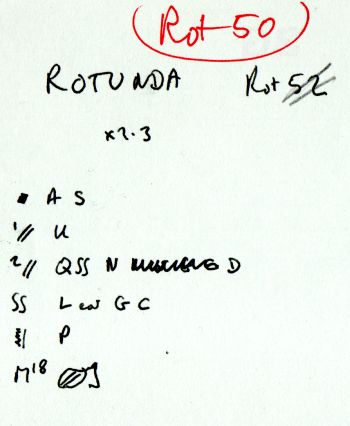 Rot-50
ROTUNDA Rot 52
x2.3
A S
1// U
2// QSS N D
SS L G C
P
M18